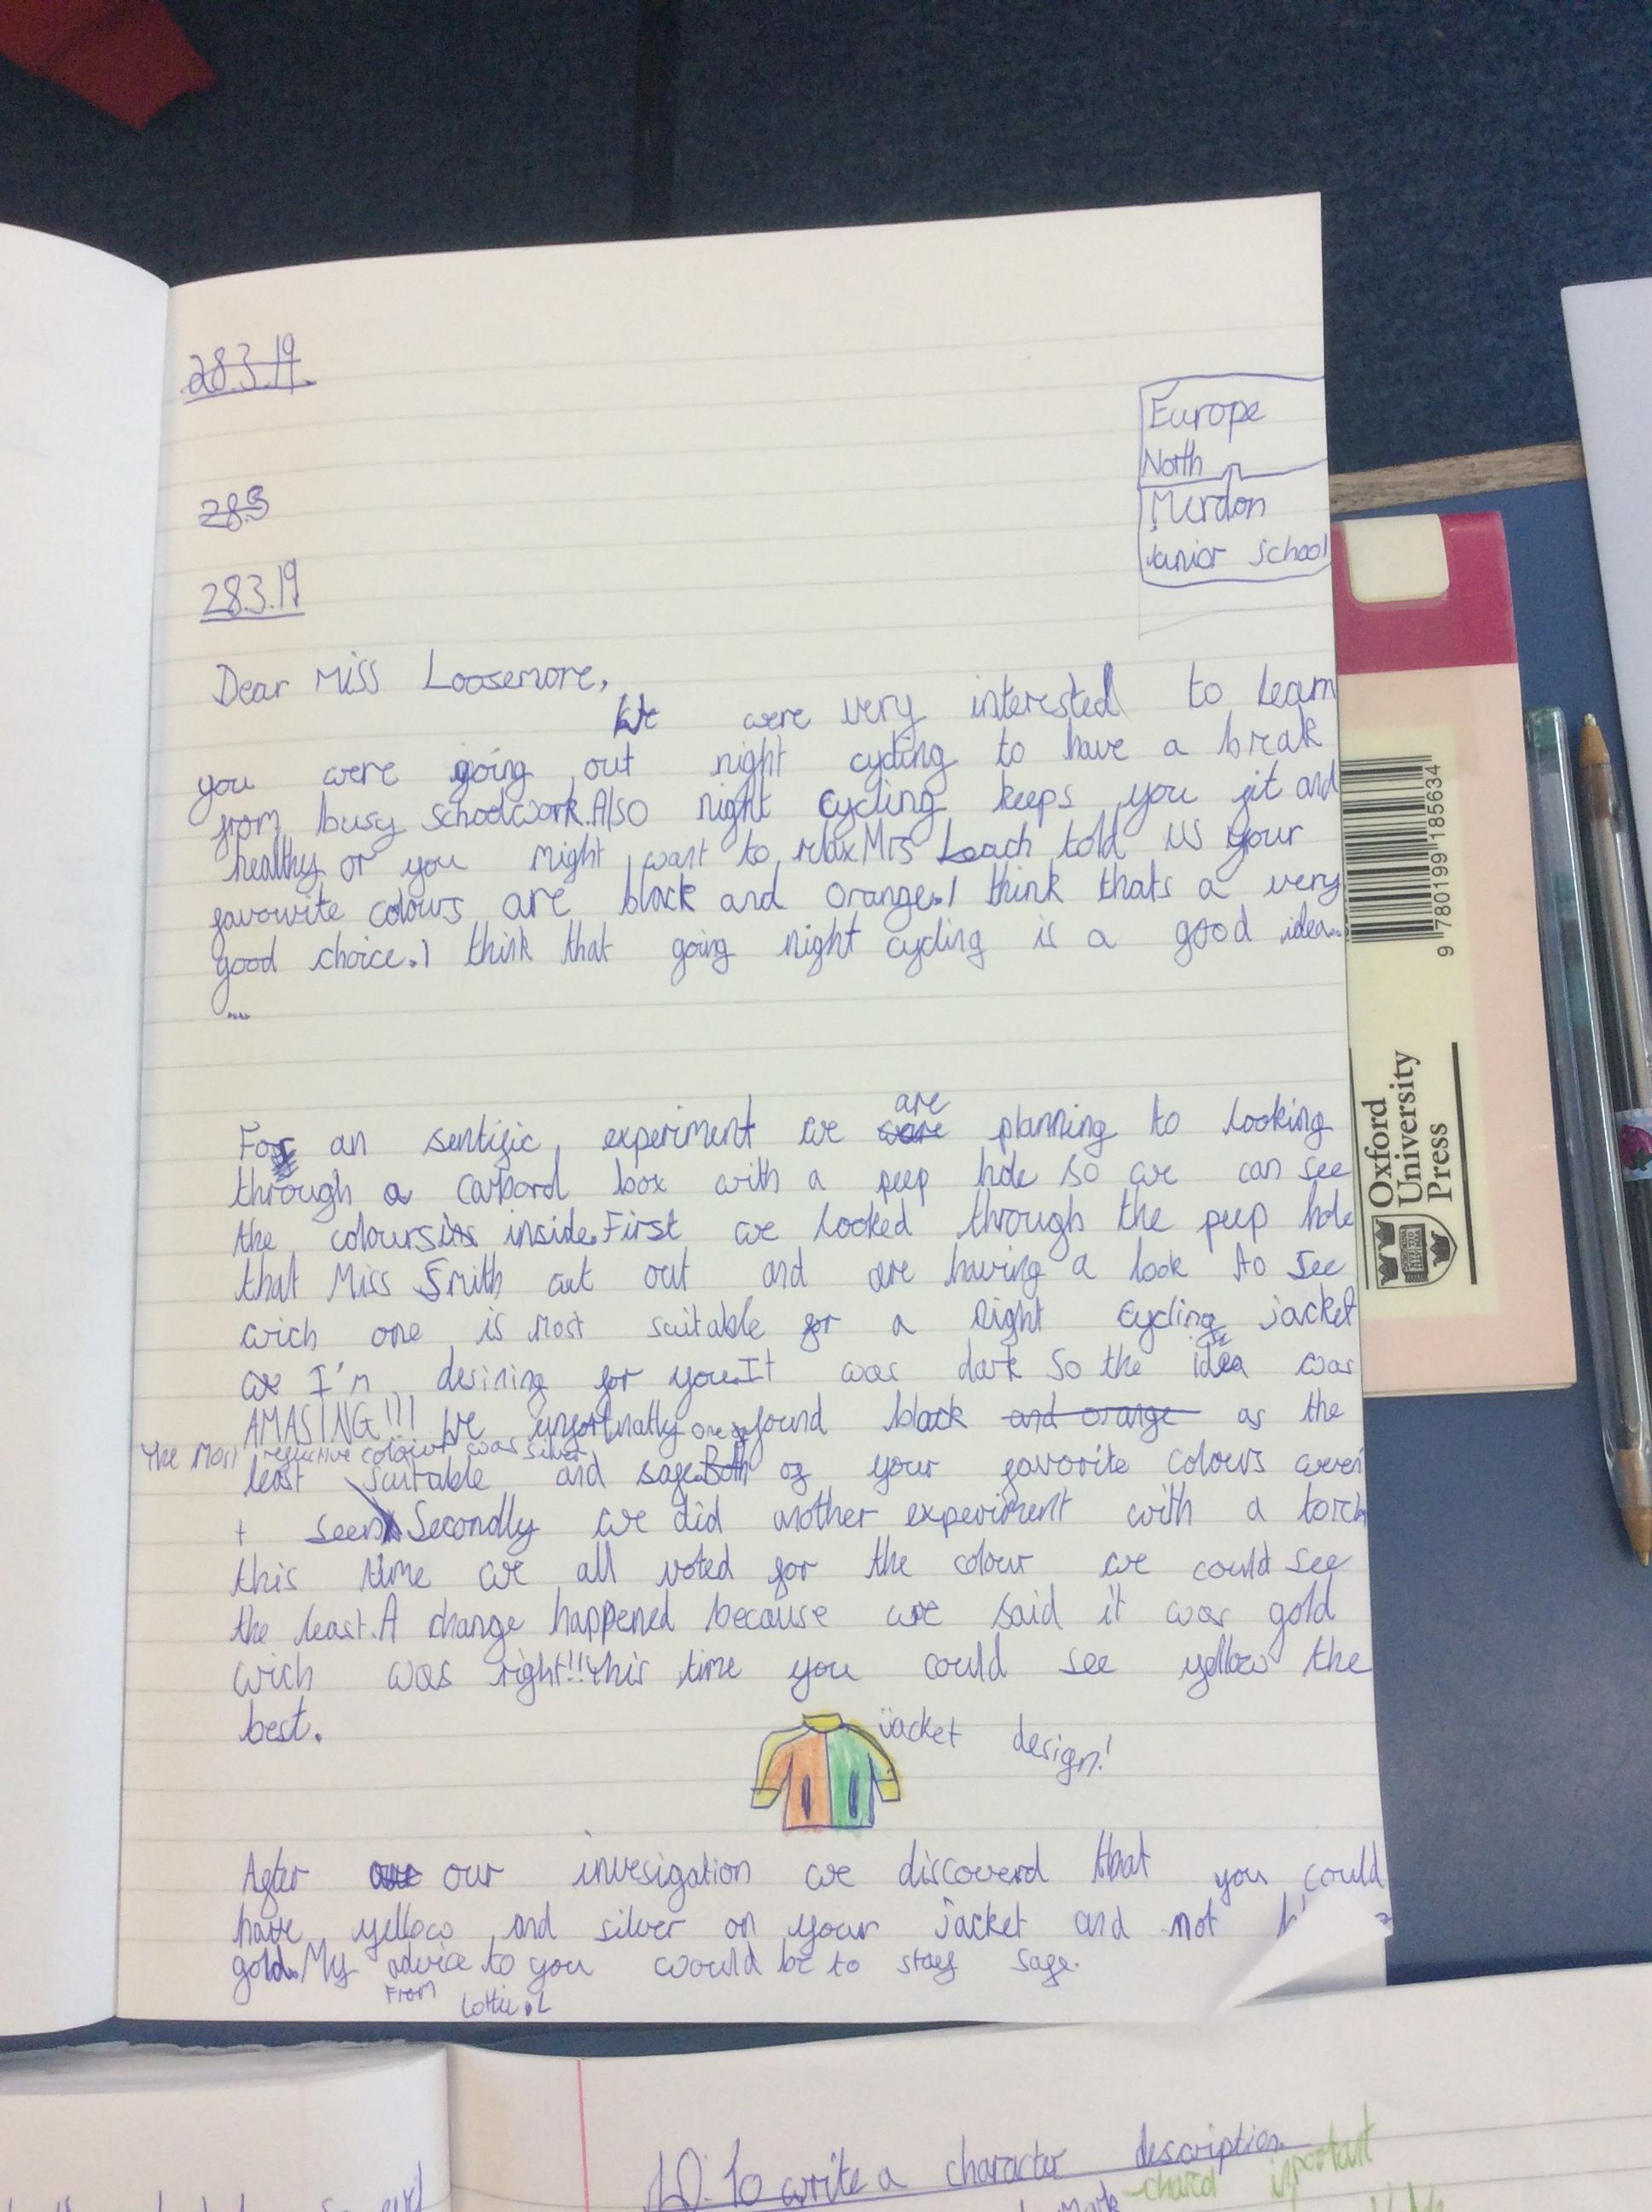 28.3.19
Europe
North
Merdon
Junior School
28.3
28.3.19
Dear Miss Loosemore,
We were very interested to learn
you were going out night cycling to have a break
from busy schoolwork. Also night cycling keeps you fit and
healthy or you might want to relax Mrs Leach told us your
favourite colours are black and orange. I think thats a very
good choice. I think that going night cycling is a good idea..
....
are
For an sentific experiment we were planning to looking
through a carbord box with a peep hole so we can see
the colours inside. First we looked through the peep hole
that Miss Smith cut out and are having a look to see
wich one is most suitable for a night cycling jacket
I'm desining for you. It was dark so the idea was
AMASING!!! We unfortnally found black and orange as the
one of
The most reflective colour was silver
least suitable and safe. Both of your favorite colours weren'
t seen. Secondly we did another experiment with a torch
this time we all voted for the colour we could see
the least. A change happened because we said it was gold
wich was right!! this time you could see yellow the
best.
jacket design!
After our invesigation we discoverd that you could
have yellow and silver on your jacket and not
gold. My advice to you would be to stay safe.
From Lottie.L
9 780199 185634
Oxford
University
Press
LO: To write a character description
important